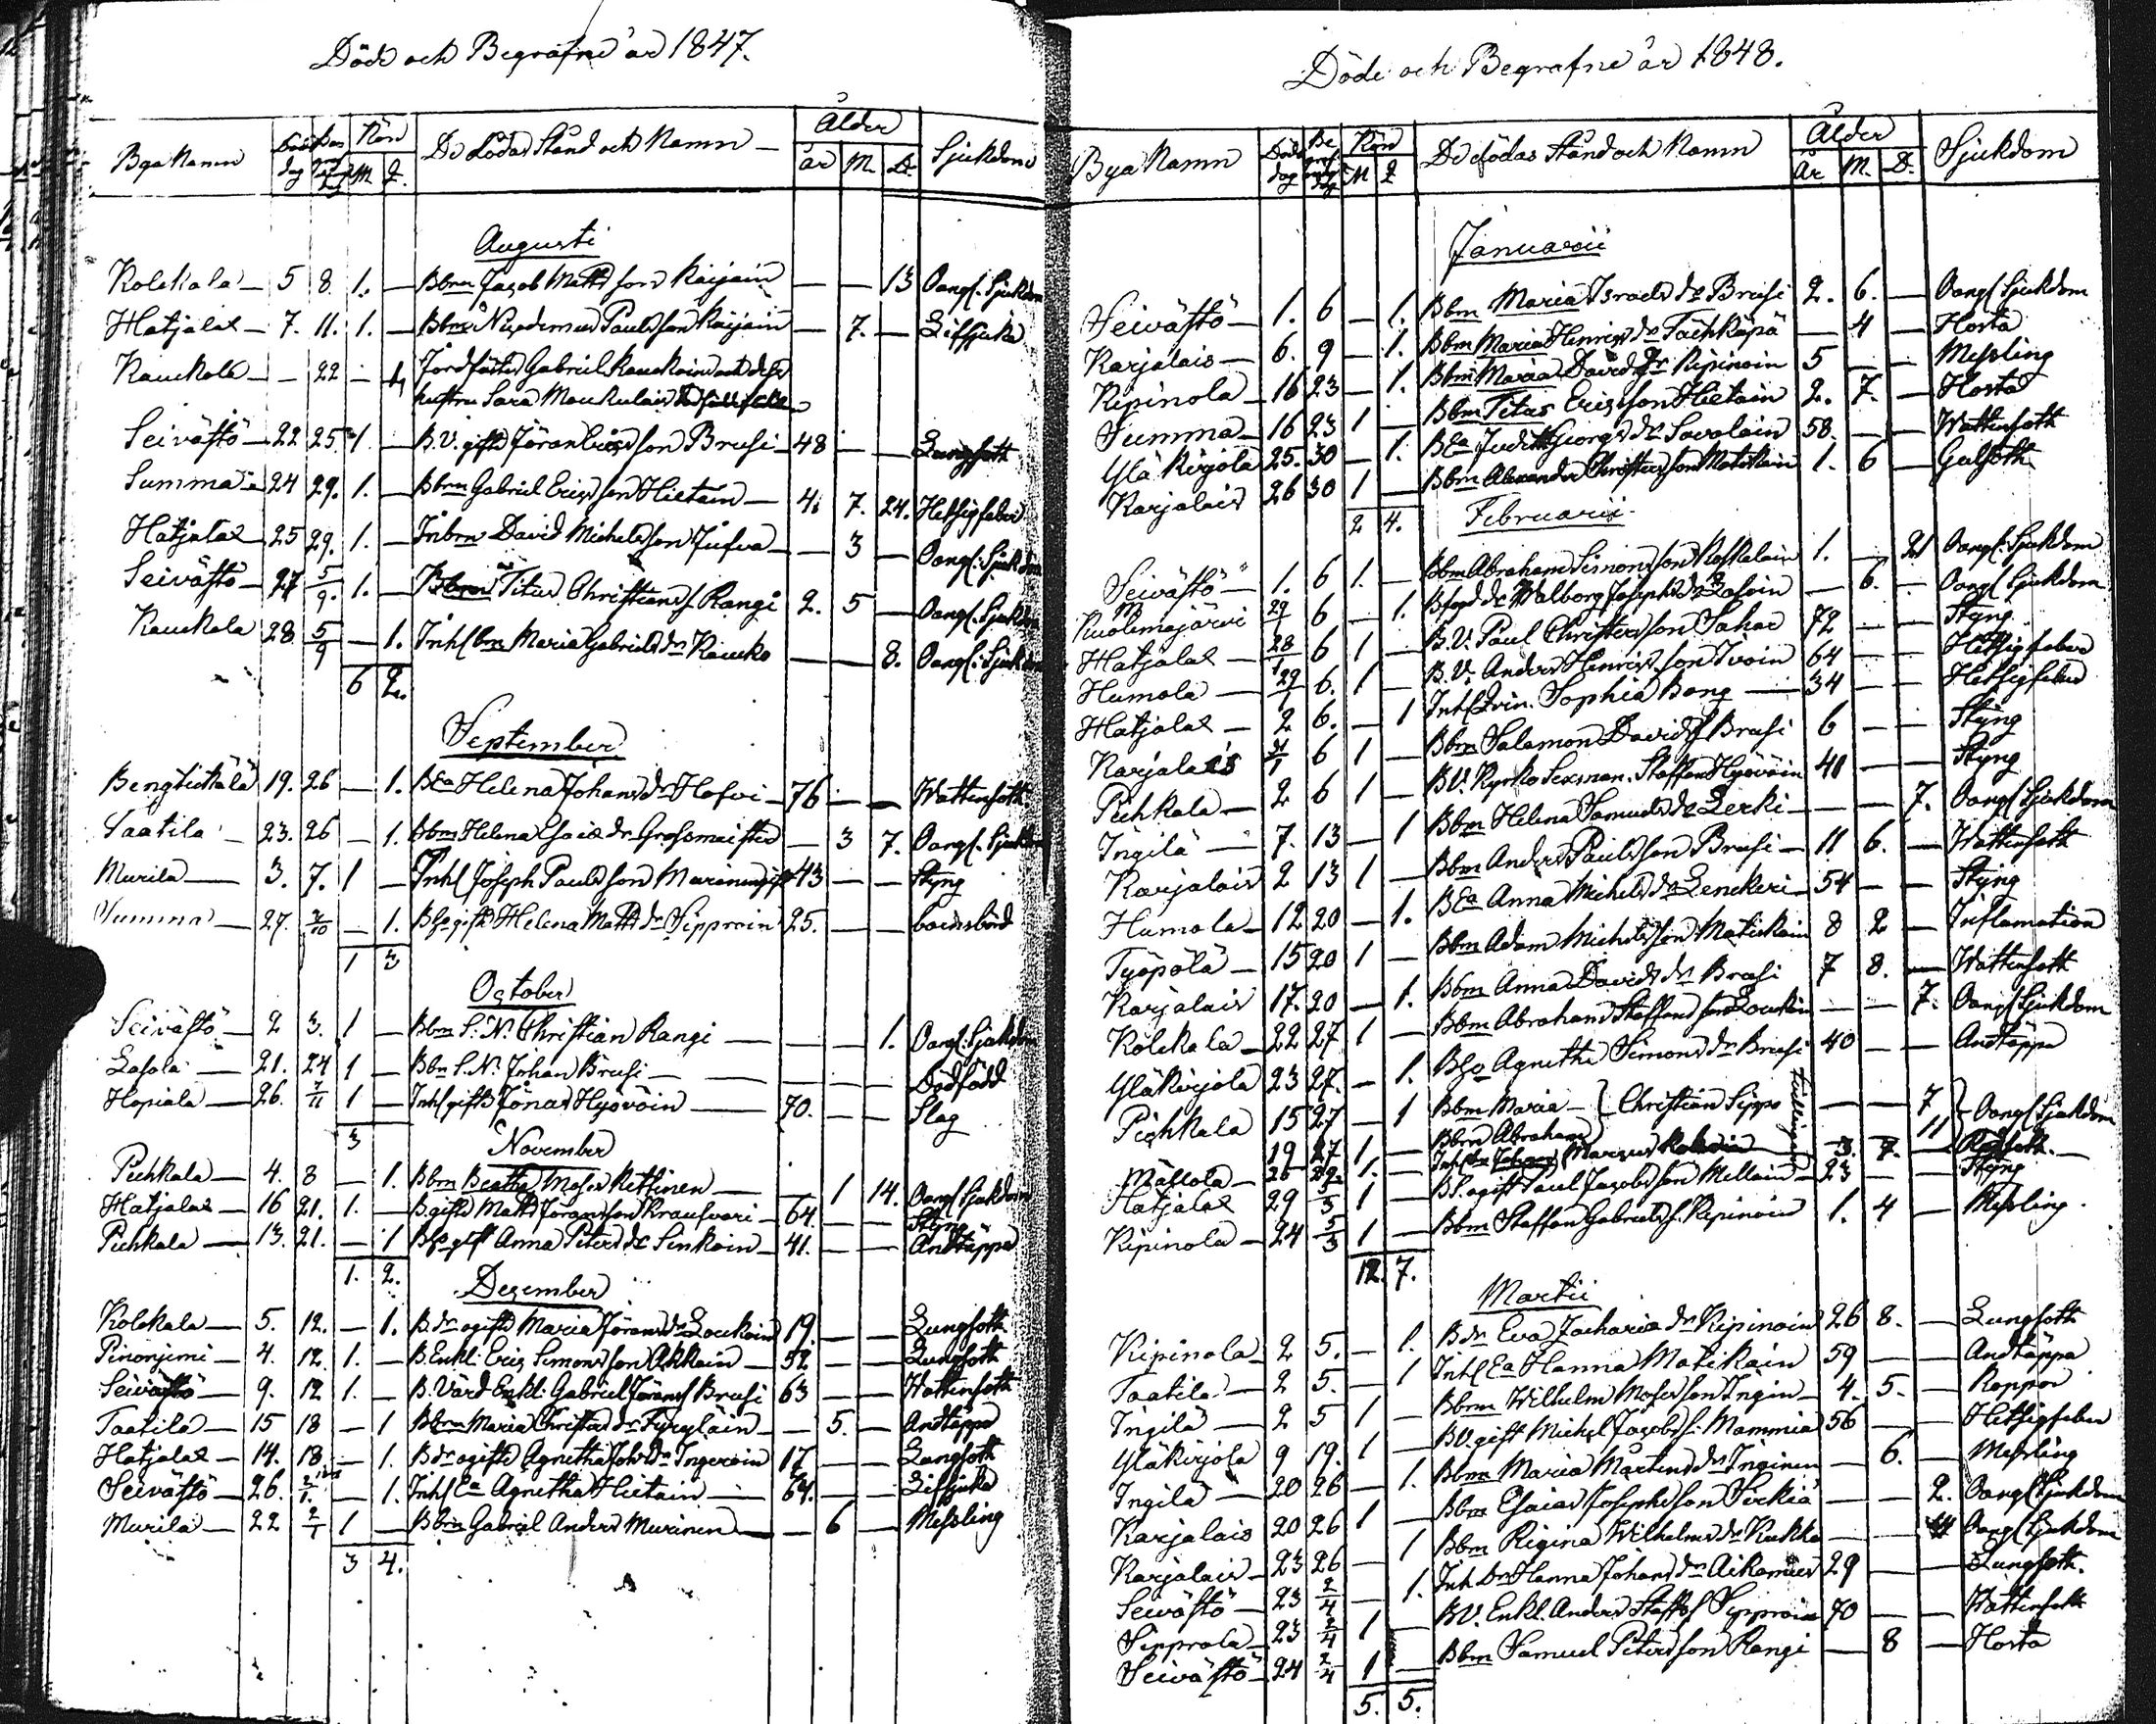 Döde och Begrafne år 1847.
Bya Namn Död dag Be graf nings dag Kön M. Q. De Dödas Stånd och Namn Ålder år M. D. Sjukdom
Augusti
Kolckala 5 8 1. — Bbrn Jacob Matts son Kaijain — — 13 Oangf. Sjukdom
Hatjalax 7. 11. 1. — Bbrn Nicodemus Pauls son Kaijain — 7. — Lifsjuka
Kauckola — 22 — 1 Jordfästes Gabriel Kauckoins
hustru Sara
Seivästö 22 25 1. — B.V. gift Jöran son Brusi 48 — — Lungsott
Summa 24 29. 1. — Bbrn Gabriel Erics son Hietain 4. 7. 24. Hetsigfeber
Hatjalax 25 29. 1. — Inbrn David Michels son Jufva — 3 — Oangf. Sjukdom
Seivästö 27 5/9. 1. — Bbrn Titus Christians s. Rangi 2. 5 — Oangf. Sjukdom
Kauckola 28 5/9 — 1. Inhsbrn Maria Gabriels dr Kaucko — — 8. Oangf. Sjukdom
6 2.
September
Bengtickälä 19. 26 — 1. BEa Helena Johans dr Hofvi 76 — — Wattensott
Taatila 23. 26 — 1. Bbrn Helena Esaias dr Grossmeister — 3 7. Oangf. Sjukdom
Murila 3. 7. 1 — Inhs Joseph Pauls son Murinen gift 43 — — Styng
Summa 27. 3/10 — 1. Bho gift Helena Matts dr Sipproin 25. — — barnsbörd
1 3
October
Seivästö 2 3. 1 — Bbrn S. N. Christian Rangi — — 1. Oangf. Sjukdom
Lasola 21. 24 1 — Bbn S. N. Johan Brusi — — — Dödfödd
Hopiala 26. 7/11 1 — Inhs gift Jonas Hyövöin 70. — — Slag
3
November
Pihkala 4. 8 — 1. Bbrn Beatha Moses Kettinen — 1 14. Oangf. Sjukdom
Hatjalax 16 21. 1. — B. gift Matts Jörans son Krausvari 64. — — Styng
Pihkala 13. 21. — 1 Bho gift Anna Peters dr Sinkoin 41. — — Andtäppa
1. 2.
December
Kolckala 5. 12. — 1. B. dr ogift Maria Jörans dr Louckoin 19. — — Lungsott
Pinonjemi 4. 12. 1. — B. Enkl. Eric Simons son Akkain 52 — — Lungsott
Seivästö 9. 12 1. — B. Värd Enkl. Gabriel Jörans s. Brusi 63 — — Wattensott
Taatila 15 18 — 1 Bbrn Maria Christers dr — 5. — Andtäppa
Hatjalax 14. 18 — 1. B dr ogift Agnetha Joh. dr Ingeroin 17 — — Lungsott
Seivästö 26. 2/1. — 1. Inhs Ea Agnetha Hietain 64. — — Lifsjuka
Murila 22 2/1 1 — Bbrn Gabriel Anders Murinen — 6 — Messling
3 4.
Döde och Begrafne år 1848.
Bya Namn Död dag Be graf nings dag Kön M Q De dödas Stånd och Namn Ålder År M. D. Sjukdom
Januarii
Seivästö 1. 6 — 1. Bbrn Maria Israels dr Brusi 2. 6. — Oangf Sjukdom
Karjalais 6. 9 — 1. Bbrn Maria Henrics dr Täehkäpä — 4 — Hosta
Kipinola 16 23 — 1. Bbrn Maria Davids dr Kipinoin 5 — — Messling
Summa 16 23 1 — Bbrn Titus Erics son Hietain 2. 7. — Hosta
Yläkirjola 25. 30 — 1. BEa Judith Georgs dr Savolain 58. — — Wattensott
Karjalais 26 30 1 — Bbrn Alexander Christers son Matikain 1. 6 — Gulsott
2 4.
Februarii
Seivästö 1. 6 1. — Bbrn Abraham Simons son Koskelain 1. — 21 Oangf. Sjukdom
Kuolemajärvi 29/1 6 — 1. Walborg Josephs dr — 6. — Oangf Sjukdom
Hatjalax 28/1 6 1 — B.V. Paul Christers son Sahar 72 — — Styng
Humola 29/1 6. 1 — B.V. Anders Henrics son Ivoin 64 — — Hetsigfeber
Hatjalax 2 6. — 1 Inhs Qvin. Sophia Bong 34 — — Hetsigfeber
Karjalais 31/1 6 1 — Bbrn Salomon Davids s Brusi 6 — — Styng
Pihkala 2 6 1 — B.V. Kyrko Sexman. Staffan Hyövöin 41 — — Styng
Ingilä 7. 13 — 1 Bbrn Helena Samuels dr Lerki — — 7. Oangf Sjukdom
Karjalais 2 13 1 — Bbrn Anders Pauls son Brusi 11 6. — Wattensott
Humola 12 20 — 1. BEa Anna Michels dr Lenckeri 54 — — Styng
Työpölä 15 20 1 — Bbrn Adam Michels son Matikain 8 2 — Inflamation
Karjalais 17. 20 — 1. Bbrn Anna Davids dr Brusi 7 8. — Wattensott
Kolckala 22 27 1 — Bbrn Abraham Staffans son Louckoin — — 7. Oangf Sjukdom
Yläkirjola 23 27. — 1. Bho Agnetha Simons dr Brusi 40 — — Andtäppa
Pihkala 15 27 — 1 Bbrn Maria } Christian Sippo tvillingar — — 7 } Oangf Sjukdom
19 27 1 — Bbrn Abraham 11
Mällola 26 1. — Marcus 3. 7. — Rödsott
Hatjalax 29 5/3 1 — B.S. ogift Paul Jacobs son Mellain 23 — — Styng
Kipinola 24 5/3 1 — Bbrn Staffan Gabriels s. Kipinoin 1. 4 — Messling
12. 7.
Martii
Kipinola 2 5. — 1. B dr Eva Zacharia dr Kipinoin 26 8. — Lungsott
Taatila 2 5. — 1 Inhs Ea Hanna Matikain 59 — — Andtäppa
Ingilä 2 5 1 — Bbrn Wilhelm Moses son Ingin 4. 5. — Koppor
Yläkirjola 9 19. 1 — B.V. gift Michel Jacobs s. Mammia 56 — — Hetsigfeber
Ingilä 20 26 — 1. Bbrn Maria Mårtens dr Inginen — 6. — Messling
Karjalais 20 26 1 — Bbrn Esaias Josephs son Sirkiä — — 2. Oangf Sjukdom
Karjalais 23 26 — 1 Bbrn Regina Wilhelms dr Kukko — — Oangf Sjukdom
Seivästö 23 2/4 — 1. Inh. Dr Hanna Johans dr Aikamies 29 — — Lungsott.
Sipprola 23 2/4 1 — B.V. Enkl. Anders Staffs s Sipproin 70 — — Wattensott
Seivästö 24 2/4 1 — Bbrn Samuel Peters son Rangi — 8 — Hosta
5. 5.